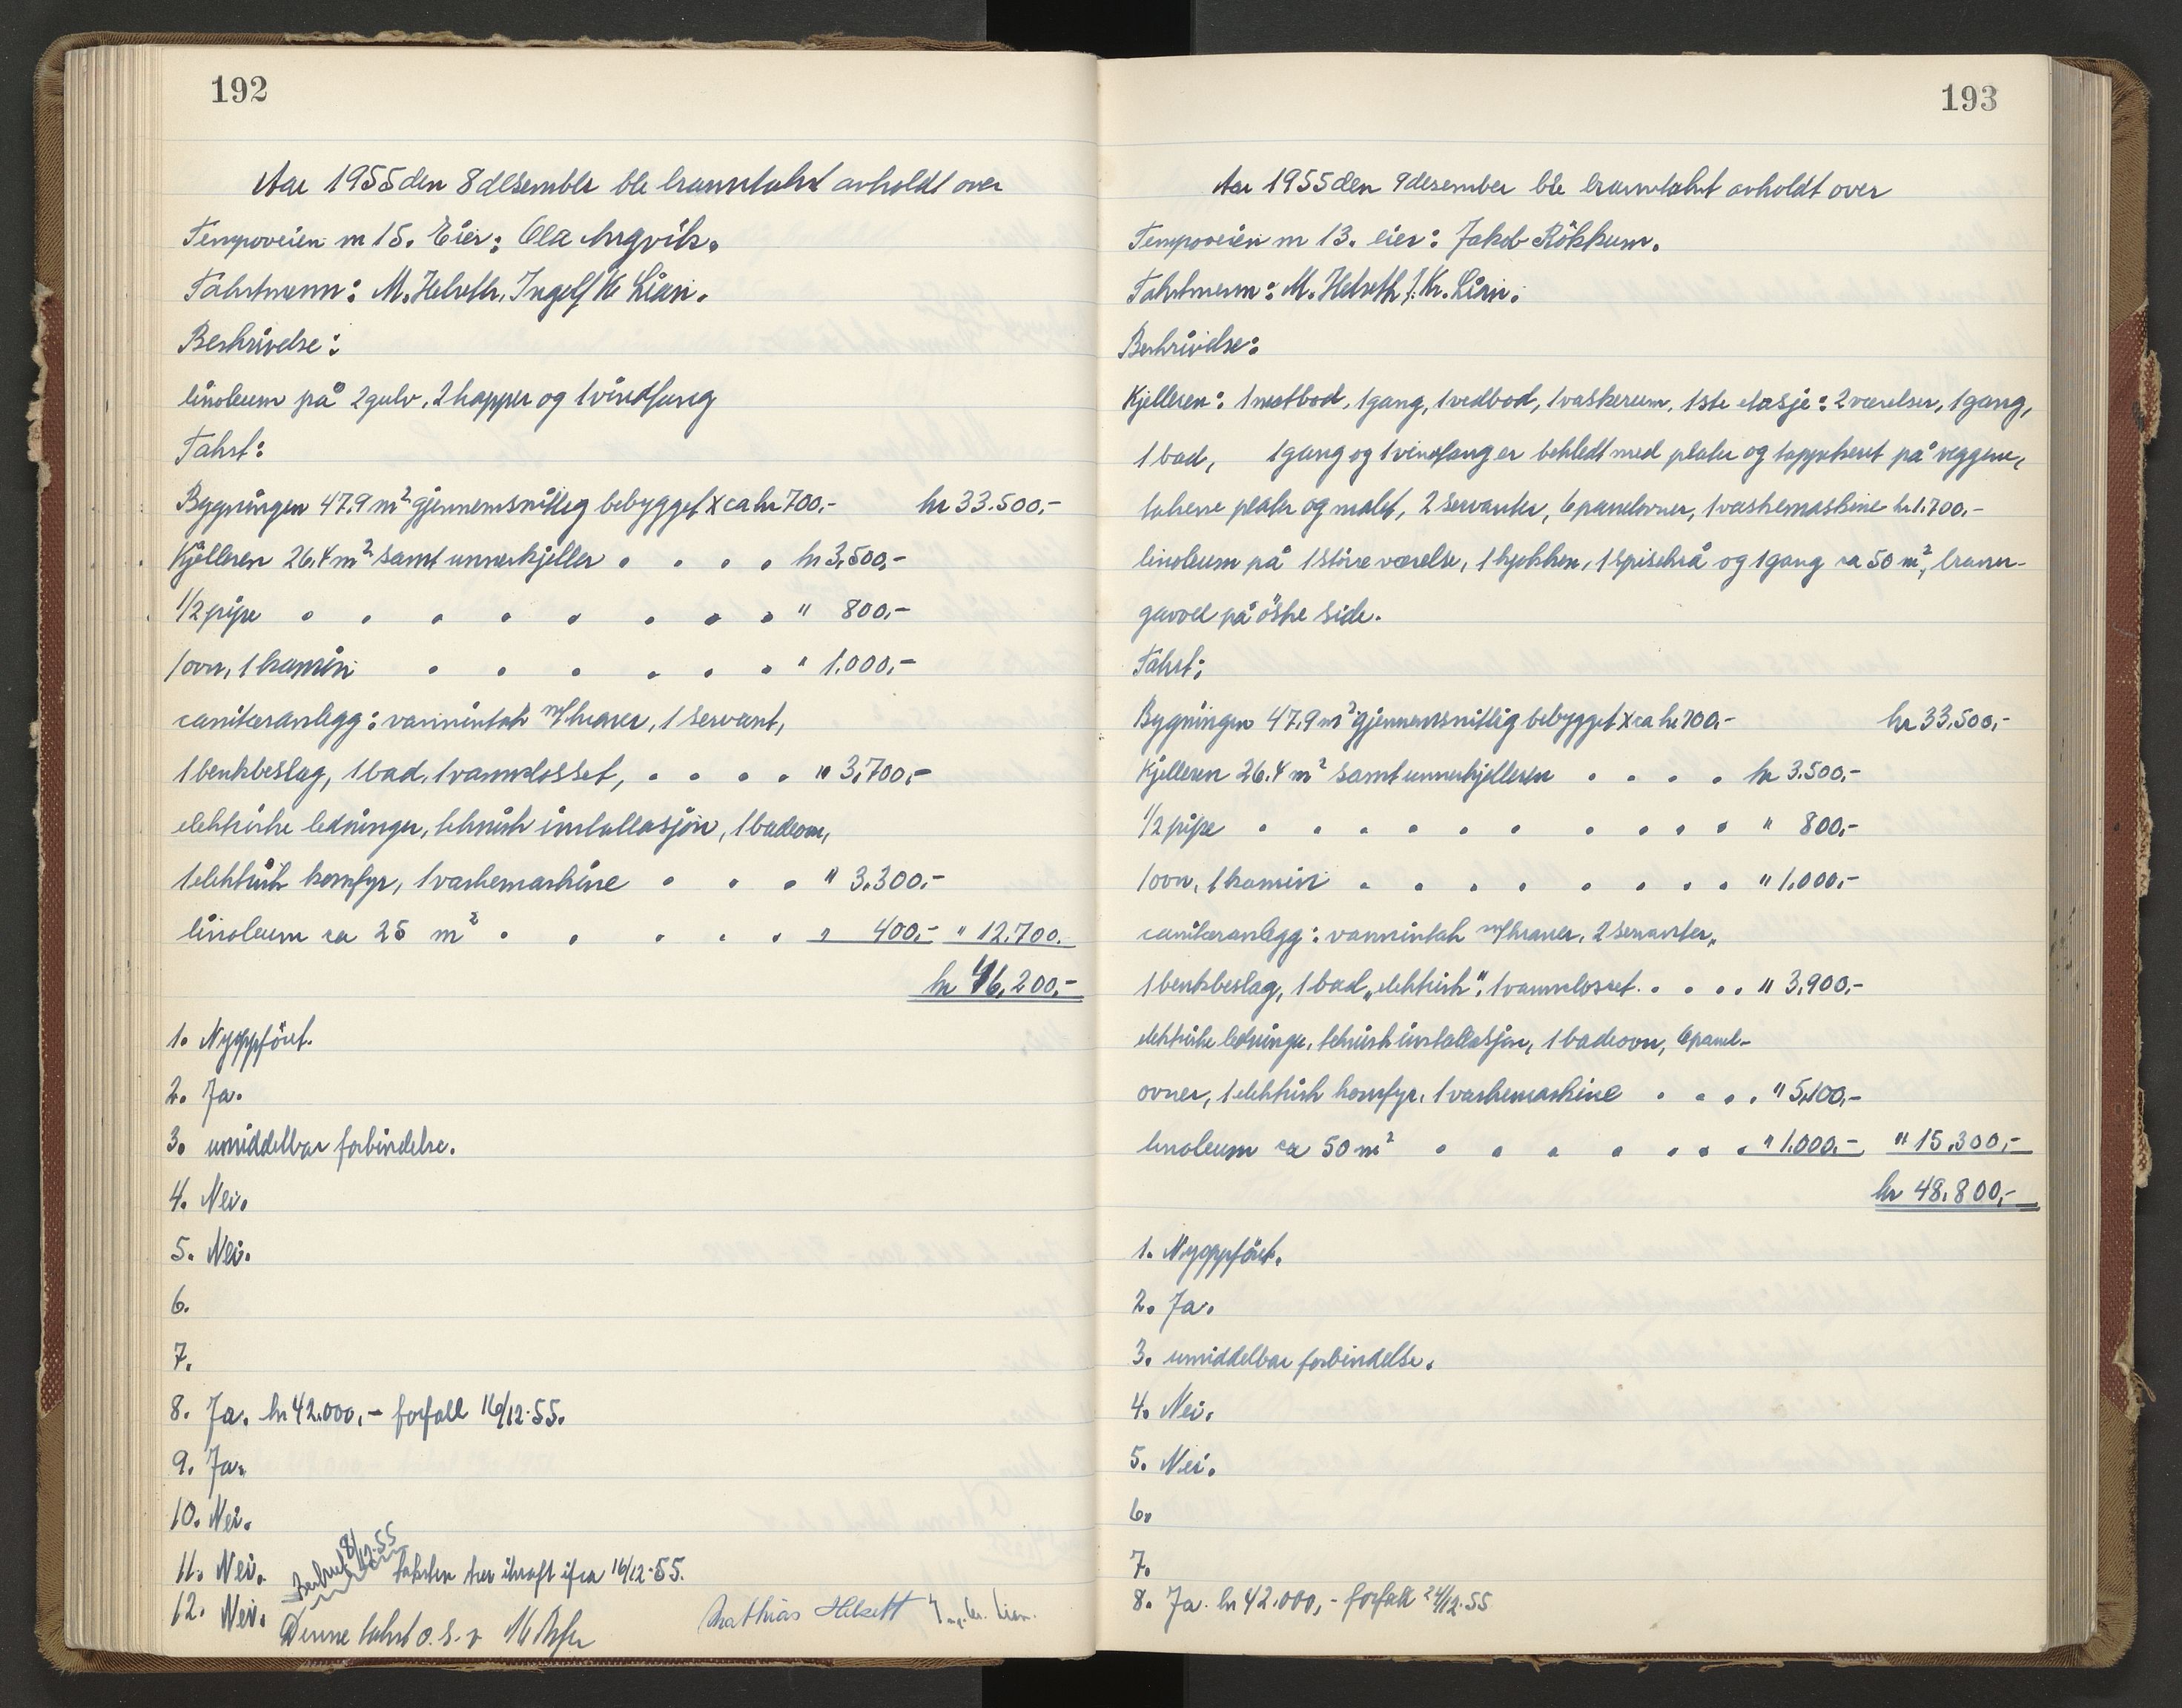 192
Aar 1955 den 8 desember ble branntakst avholdt over
Tempoveien nr 15. Eier: Ola Angvik.
Takstmenn: M. Helseth, Ingolf Kr Lian.
Beskrivelse:
linoleum på 2 gulv, 2 trapper og 1 vindfang
Takst:
Bygningen 47.9 m² gjennemsnitlig bebygget x ca kr 700,- kr 33.500,-
Kjelleren 26.4 m² samt unnerkjeller . . . . kr 3,500,-
1/2 pipe . . . . . . . . " 800,-
1 ovn, 1 kamin . . . . . . " 1.000,-
sanitæranlegg: vanninntak m/kraner, 1 servant,
1 benkbeslag, 1 bad, 1 vannclosset, . . . . " 3,700,-
elektriske ledninger, teknisk installasjon, 1 badeovn,
1 elektrisk komfyr, 1 vaskemaskine . . . " 3.300,-
linoleum ca 25 m² . . . . . " 400,- " 12.700.
kr 46,200,-
1. Nyoppfört.
2. Ja.
3. umiddelbar forbindelse.
4. Nei.
5. Nei.
6.
7.
8. Ja. kr 42.000,- forfall 16/12-55.
9. Ja.
10. Nei.
11. Nei. 8/12-55 taksten trer ikraft ifra 16/12-55.
12. Nei. Denne takst o.s.v. Mathias Helseth Ing. Kr. Lian.
193
Aar 1955 den 9 desember ble branntakst avholdt over
Tempoveien nr 13. eier: Jakob Rökkum.
Takstmenn: M. Helseth I. Kr. Lian.
Beskrivelse:
Kjelleren: 1 matbod, 1 gang, 1 vedbod, 1 vaskerum, 1ste etasje: 2 værelser, 1 gang,
1 bad, 1 gang og 1 vindfang er bekledt med plater og tappetsert på veggene,
takene plater og malt, 2 servanter, 6 panelovner, 1 vaskemaskine kr 1.700.-
linoleum på 1 större værelse, 1 kjøkken, 1 spisekrå og 1 gang ca 50 m², brann-
gavvel på östre side.
Takst:
Bygningen 47.9 m² gjennemsnitlig bebygget x ca kr 700,- kr 33,500,-
Kjelleren 26.4 m² samt unnerkjelleren . . . . kr 3.500,-
1/2 pipe . . . . . . . . . . . " 800,-
1 ovn, 1 kamin . . . . . . . . " 1.000,-
sanitæranlegg: vanninntak m/kraner, 2 servanter,
1 benkbeslag, 1 bad „elektrisk", 1 vannclosset. . . . . " 3,900,-
elektriske ledninger, teknisk installasjon, 1 badeovn, 6 panel-
ovner, 1 elektrisk komfyr, 1 vaskemaskine . . . . " 5,100,-
linoleum ca 50 m² . . . . . . . " 1.000.- " 15,300,-
kr 48.800,-
1. Nyoppfört.
2. Ja.
3. umiddelbar forbindelse.
4. Nei.
5. Nei.
6.
7.
8. Ja. kr 42.000,- forfall 24/12-55